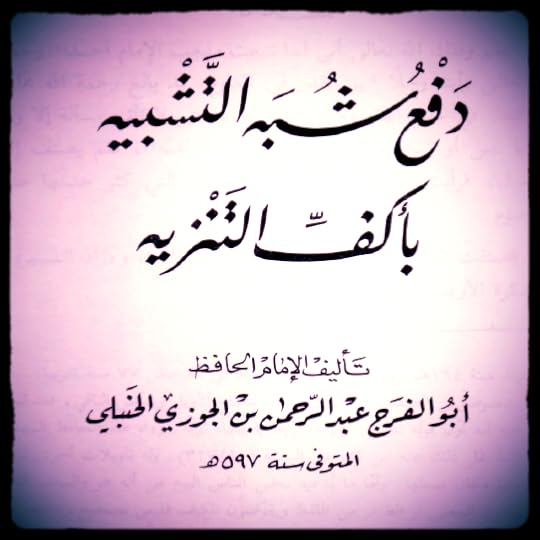 دَفْعُ شُبَه التَّشْبيه
بأكفِّ التَنْزيه
تَأليفْ الإمَامْ الحَافظ
أبُو الفَرَج عبْد الرّحمن بنْ الجوزي الحَنبلي
المتوفى سنة ٥٩٧ هـ